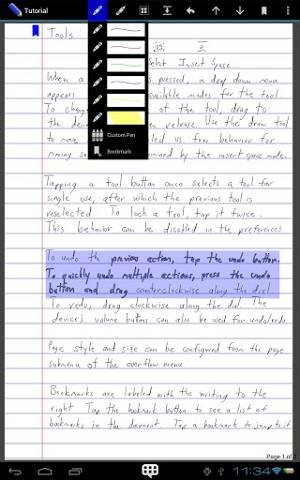 Tutorial
Tools:
Select Insert Space
When a pressed, a drop down menu
appears available modes for the tool
To change of the tool, drag to
the des release. Use the draw tool
to ed vs free behavior for
ruling s med by the insert space mode.
Tapping a tool button once selects a tool for
single use, after which the previous tool is
reselected To lock a tool, tap it twice.
This behavior can be disabled in the preferences
To undo the previous action, tap the undo button.
To quickly undo multiple actions, press the undo
button and drag counterclockwise along the dial
To redo, drag clockwise along the dial The
device's volume buttons can also be used for undo/redo.
Page style and size can be configured from the page
submenu of the overflow menu
Bookmarks are labeled with the writing to the
right Tap the bookmark button to see a list of
bookmarks in the document. Tap a bookmark to jump to it
Custom Pen
Bookmark
Page 1 of 2
11:34